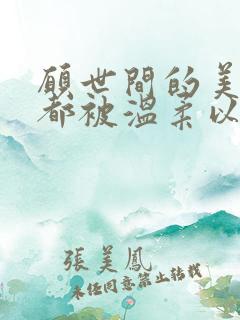 願世間的美
都被溫柔以
張美鳳
未经同意禁止转载